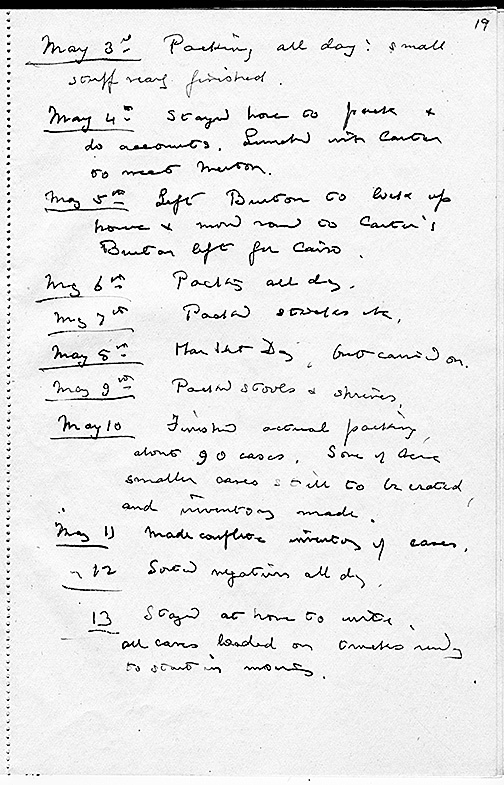 19
May 3rd Packing all day: small
stuff nearly finished.
May 4th Stayed home to pack &
do accounts. Lunched with Carter
to meet Merton.
May 5th Left Burton to lock up
house & moved round to Carter's
Burton left for Cairo.
May 6th Packing all day.
May 7th Packed statues etc.
May 8th Market Day, but carried on.
May 9th Packed stools & shrines,
May 10 Finished actual packing,
about 90 cases. Some of these
smaller cases still to be crated,
and inventory made.
May 11 Made complete inventory of cases.
" 12 Sorted negatives all day.
13 Stayed at home to write.
all cases loaded on trucks ready
to start in morning.